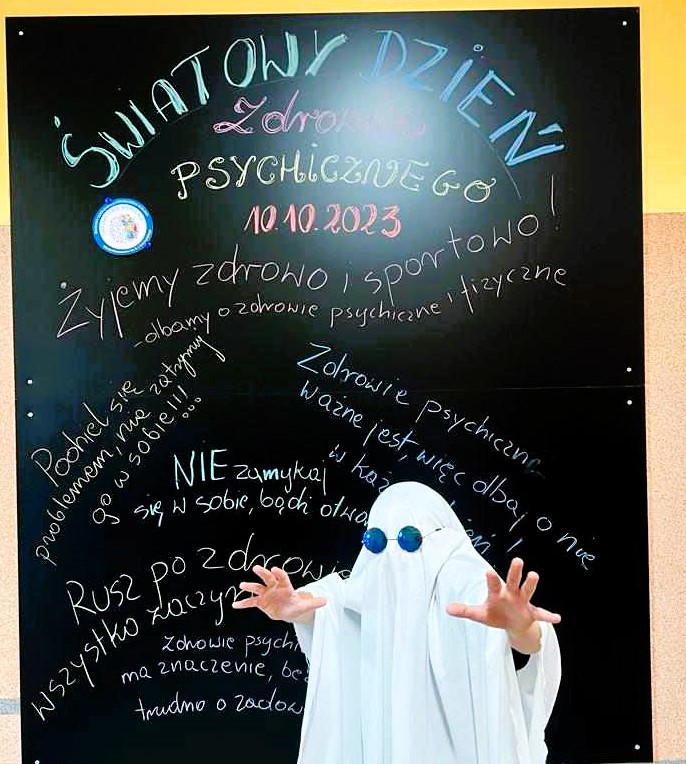 ŚWIATOWY DZIEŃ
PSYCHICZNEGO
10.10.2023
Żyjemy zdrowo i sportowo!
-dbamy o zdrowie psychiczne i fizyczne
Podziel się
problemem, nie zatrzymuj
go w sobie!!!...
Zdrowie psychiczne
ważne jest, więc dbaj o nie
w
NIE zamykaj
się w sobie, bądź
Rusz po zdrowie
wszystko
Zdrowie
ma znaczenie,
trudno o